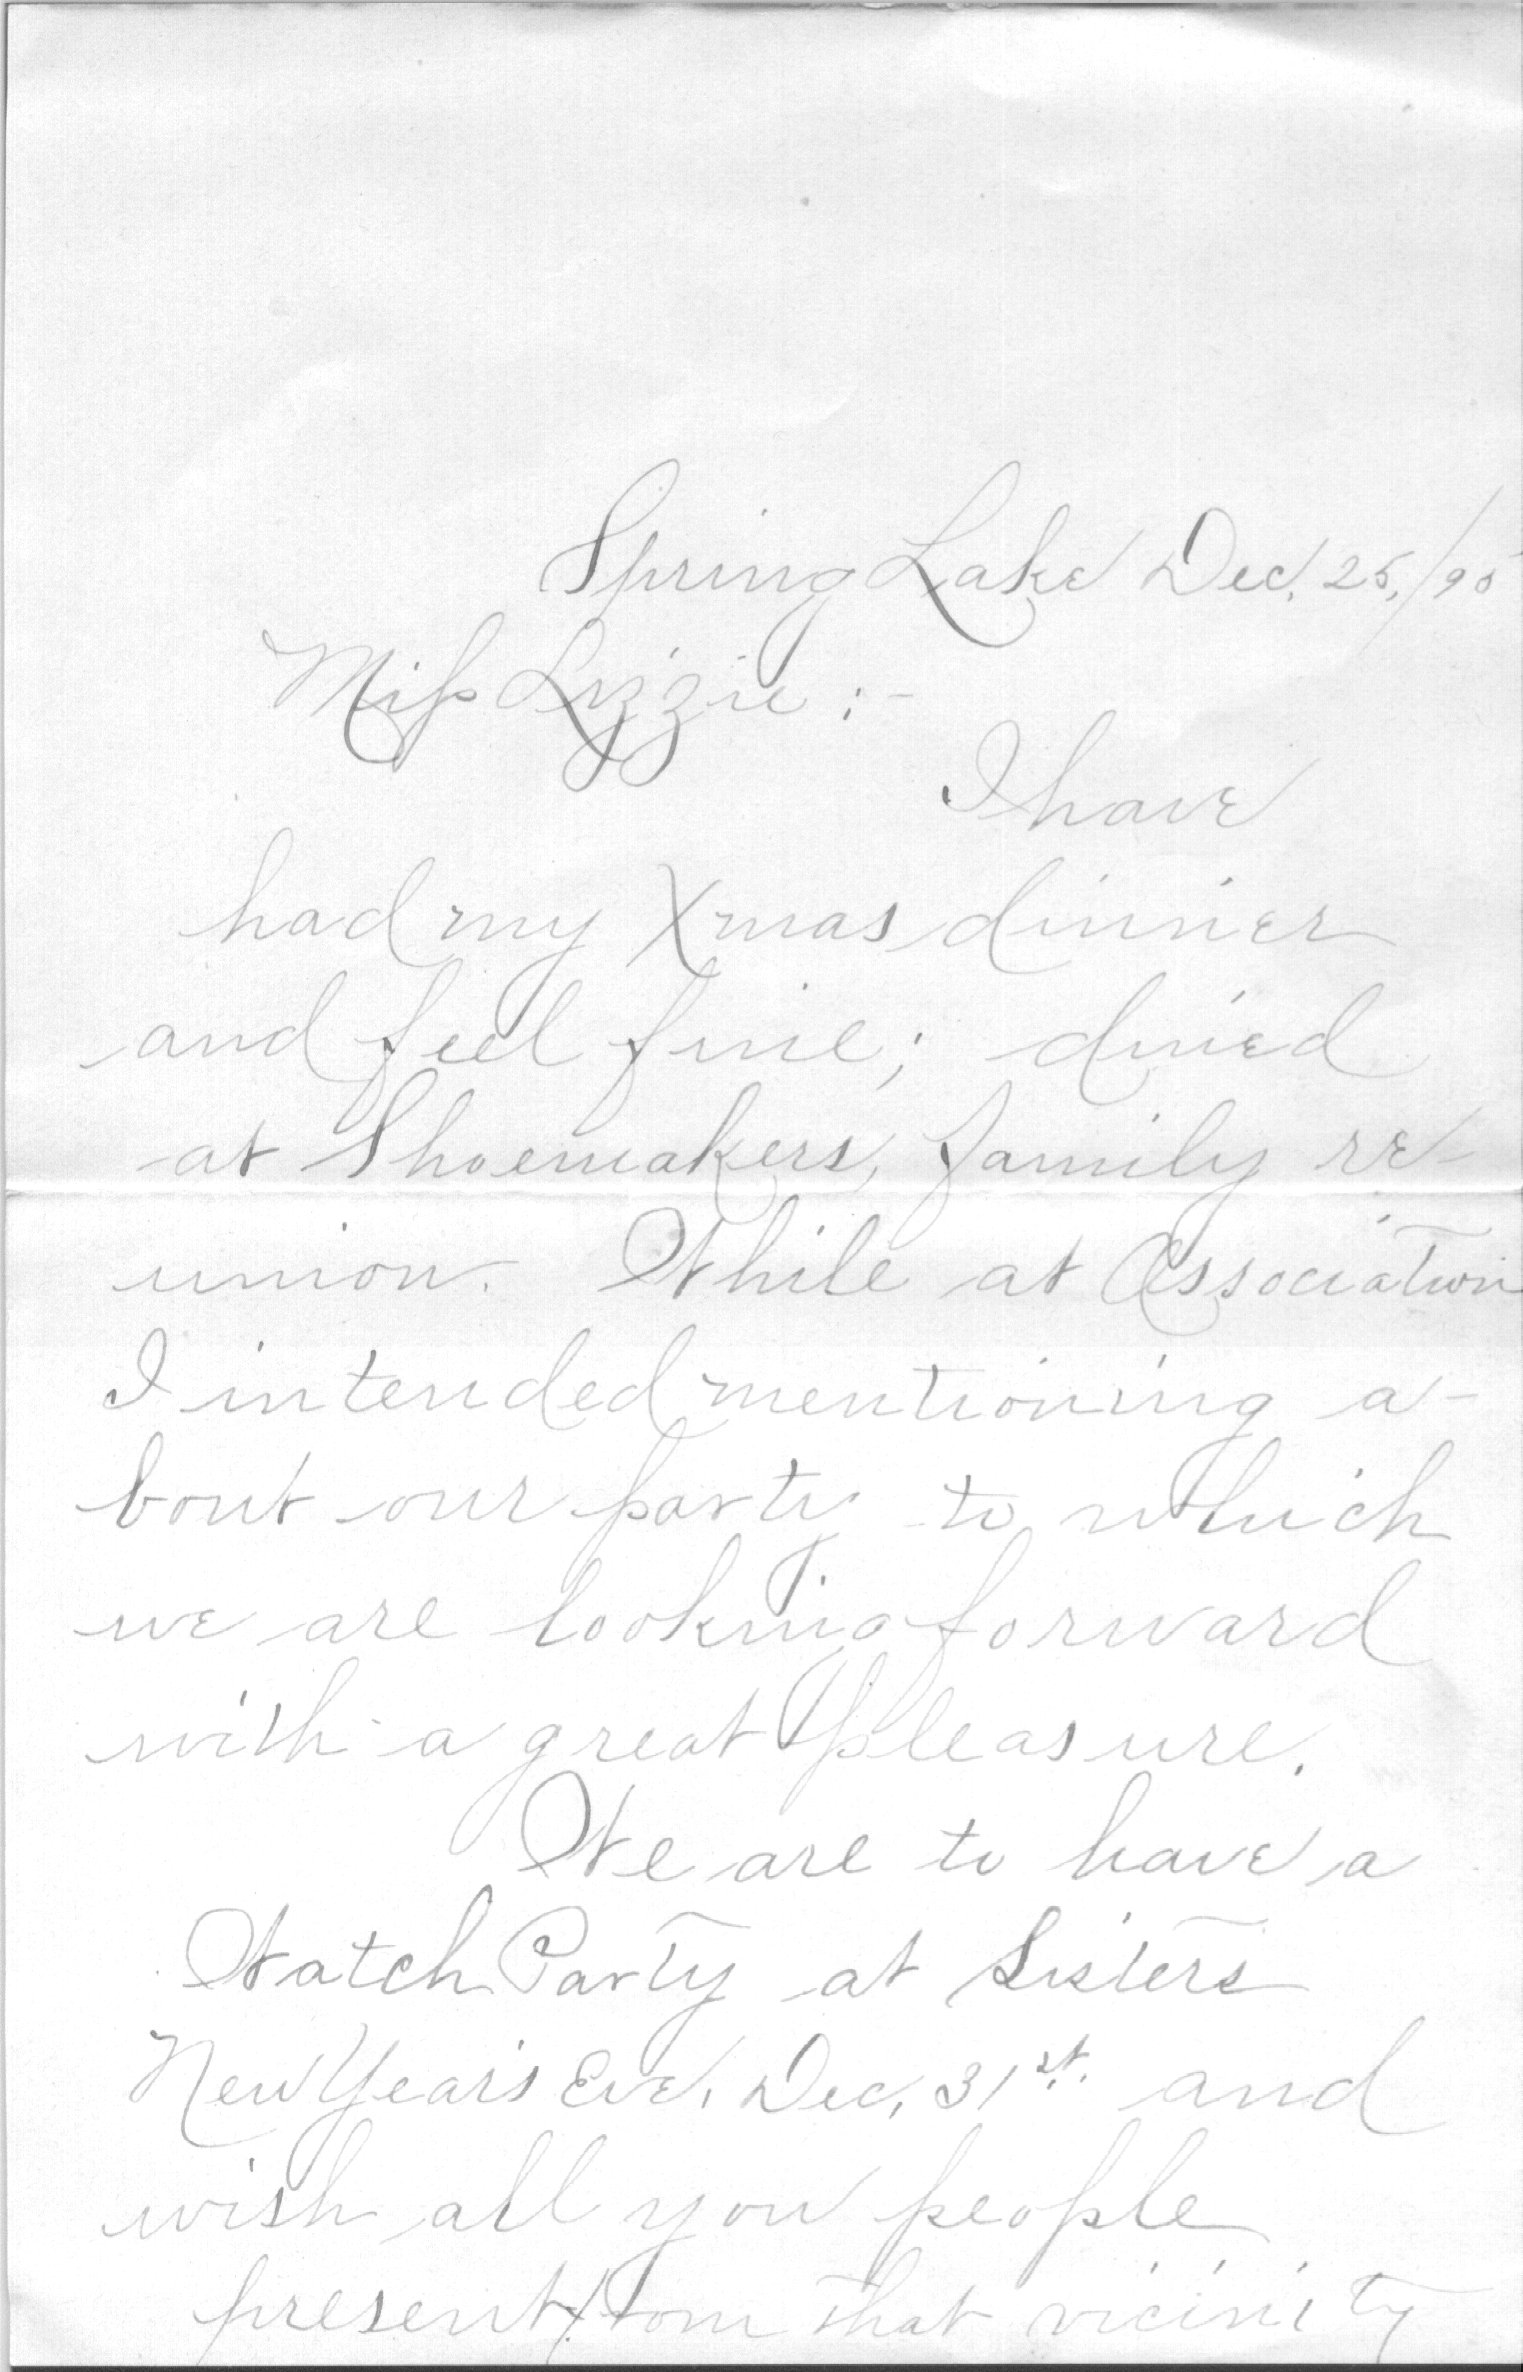 Spring Lake Dec. 25, /95
Miss Lizzie :-
I have
had my Xmas dinner
and feel fine; dined
at Shoemakers, family re-
union. While at Association
I intended mentioning a-
bout our party to which
we are looking forward
with a great pleasure.
We are to have a
Watch Party at Sisters
New Year's Eve, Dec, 31st. and
wish all you people
present from that vicinity